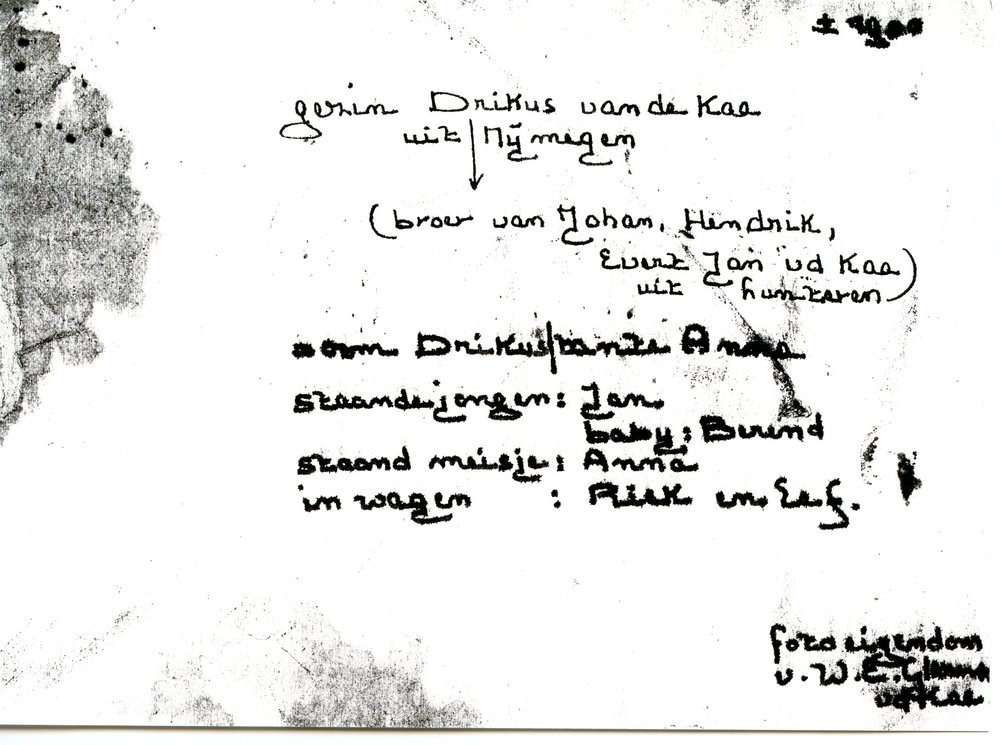 ± 1900
gezin Drikus van de Kaa
uit Nijmegen
(broer van Johan, Hendrik,
Evert Jan vd Kaa)
uit hunteren
= oom Drikus/tante Anna
staande jongen: Jan
baby: Berend
staand meisje: Anna
in wagen : Riek en Eef.
foto eigendom
v. W. E.
vd Kaa